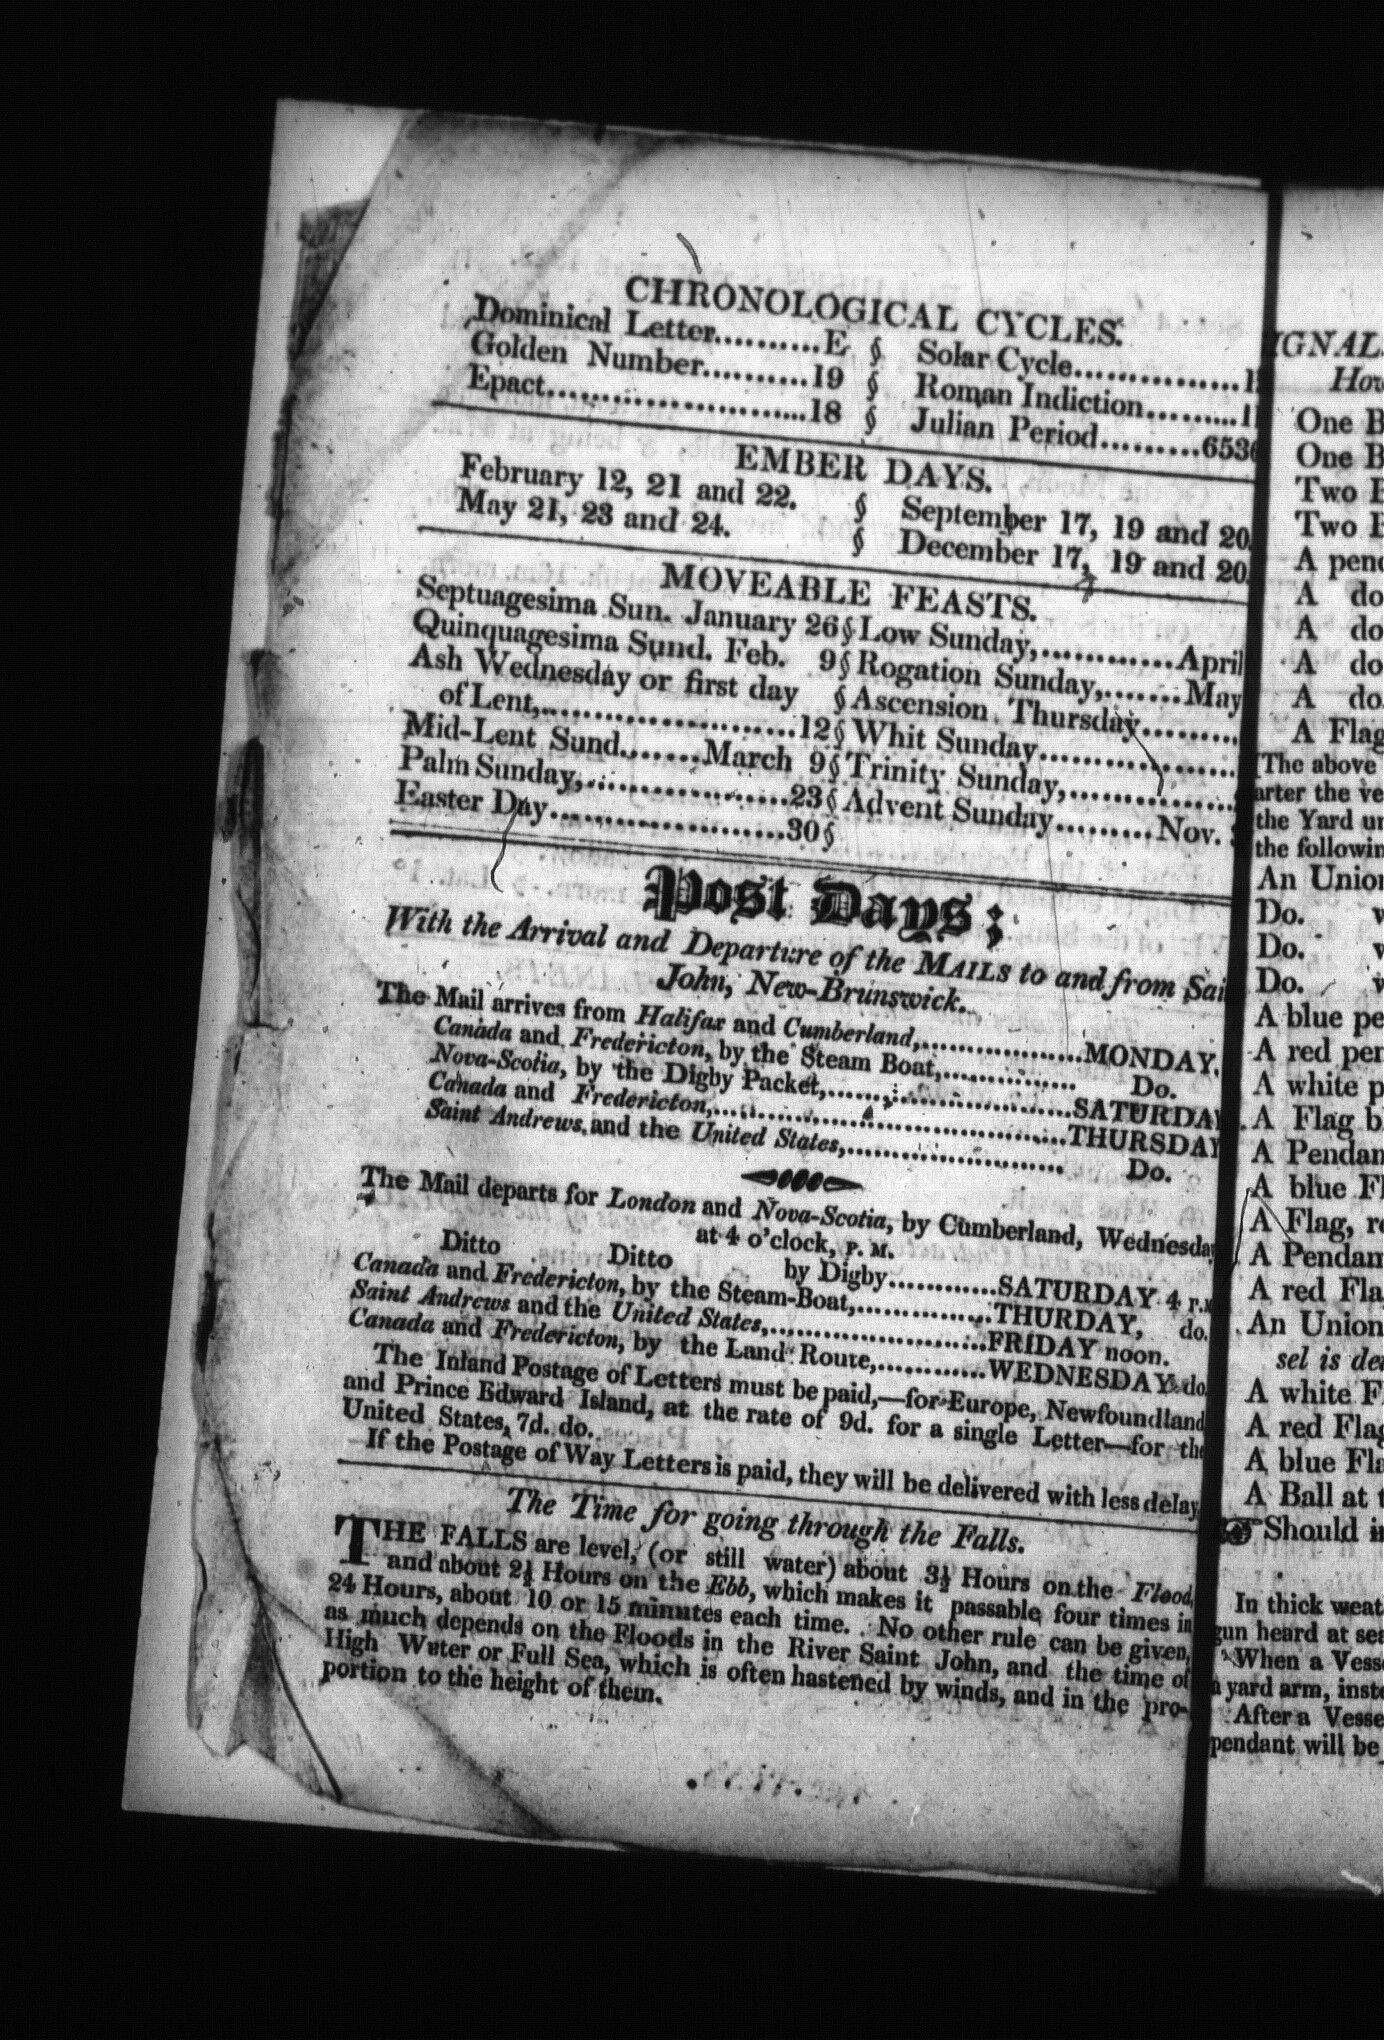 CHRONOLOGICAL CYCLES.
Dominical Letter..........E § Solar Cycle................
Golden Number..........19 § Roman Indiction.........
Epact........................18 § Julian Period..........653
EMBER DAYS.
February 12, 21 and 22. § September 17, 19 and 20.
May 21, 23 and 24. § December 17, 19 and 20.
MOVEABLE FEASTS.
Septuagesima Sun. January 26 § Low Sunday,............April
Quinquagesima Sund. Feb. 9 § Rogation Sunday,.......May
Ash Wednesday or first day § Ascension Thursday.........
of Lent,........................12 § Whit Sunday..................
Mid-Lent Sund.......March 9 § Trinity Sunday,...............
Palm Sunday,..................23 § Advent Sunday.........Nov.
Easter Day.....................30 §
Post Days;
With the Arrival and Departure of the MAILS to and from Sai
John, New-Brunswick.
The Mail arrives from Halifax and Cumberland,................MONDAY.
Canada and Fredericton, by the Steam Boat,.............. Do.
Nova-Scotia, by the Digby Packet,........................SATURDAY
Canada and Fredericton,..................................THURSDAY
Saint Andrews and the United States,...................... Do.
The Mail departs for London and Nova-Scotia, by Cumberland, Wednesday
at 4 o'clock, P. M.
Ditto Ditto by Digby...........SATURDAY 4 P.M
Canada and Fredericton, by the Steam-Boat,..............THURDAY, do.
Saint Andrews and the United States,......................FRIDAY noon.
Canada and Fredericton, by the Land Route,...........WEDNESDAY do.
The Inland Postage of Letters must be paid,—for Europe, Newfoundland
and Prince Edward Island, at the rate of 9d. for a single Letter—for the
United States, 7d. do.
If the Postage of Way Letters is paid, they will be delivered with less delay.
The Time for going through the Falls.
THE FALLS are level, (or still water) about 3½ Hours on the Flood,
and about 2½ Hours on the Ebb, which makes it passable four times in
24 Hours, about 10 or 15 minutes each time. No other rule can be given,
as much depends on the Floods in the River Saint John, and the time of
High Water or Full Sea, which is often hastened by winds, and in the pro-
portion to the height of them.
IGNAL
How
One B
One B
Two B
Two B
A pend
A do
A do
A do
A do.
A Flag
[The above
arter the ve
the Yard un
the followin
An Union
Do. w
Do. w
Do. w
A blue pe
A red pen
A white p
A Flag bl
A Pendan
A blue Fl
A Flag, re
A Pendan
A red Fla
An Union
sel is de
A white F
A red Flag
A blue Fla
A Ball at t
Should in
In thick weat
gun heard at sea
When a Vesse
a yard arm, inste
After a Vesse
pendant will be